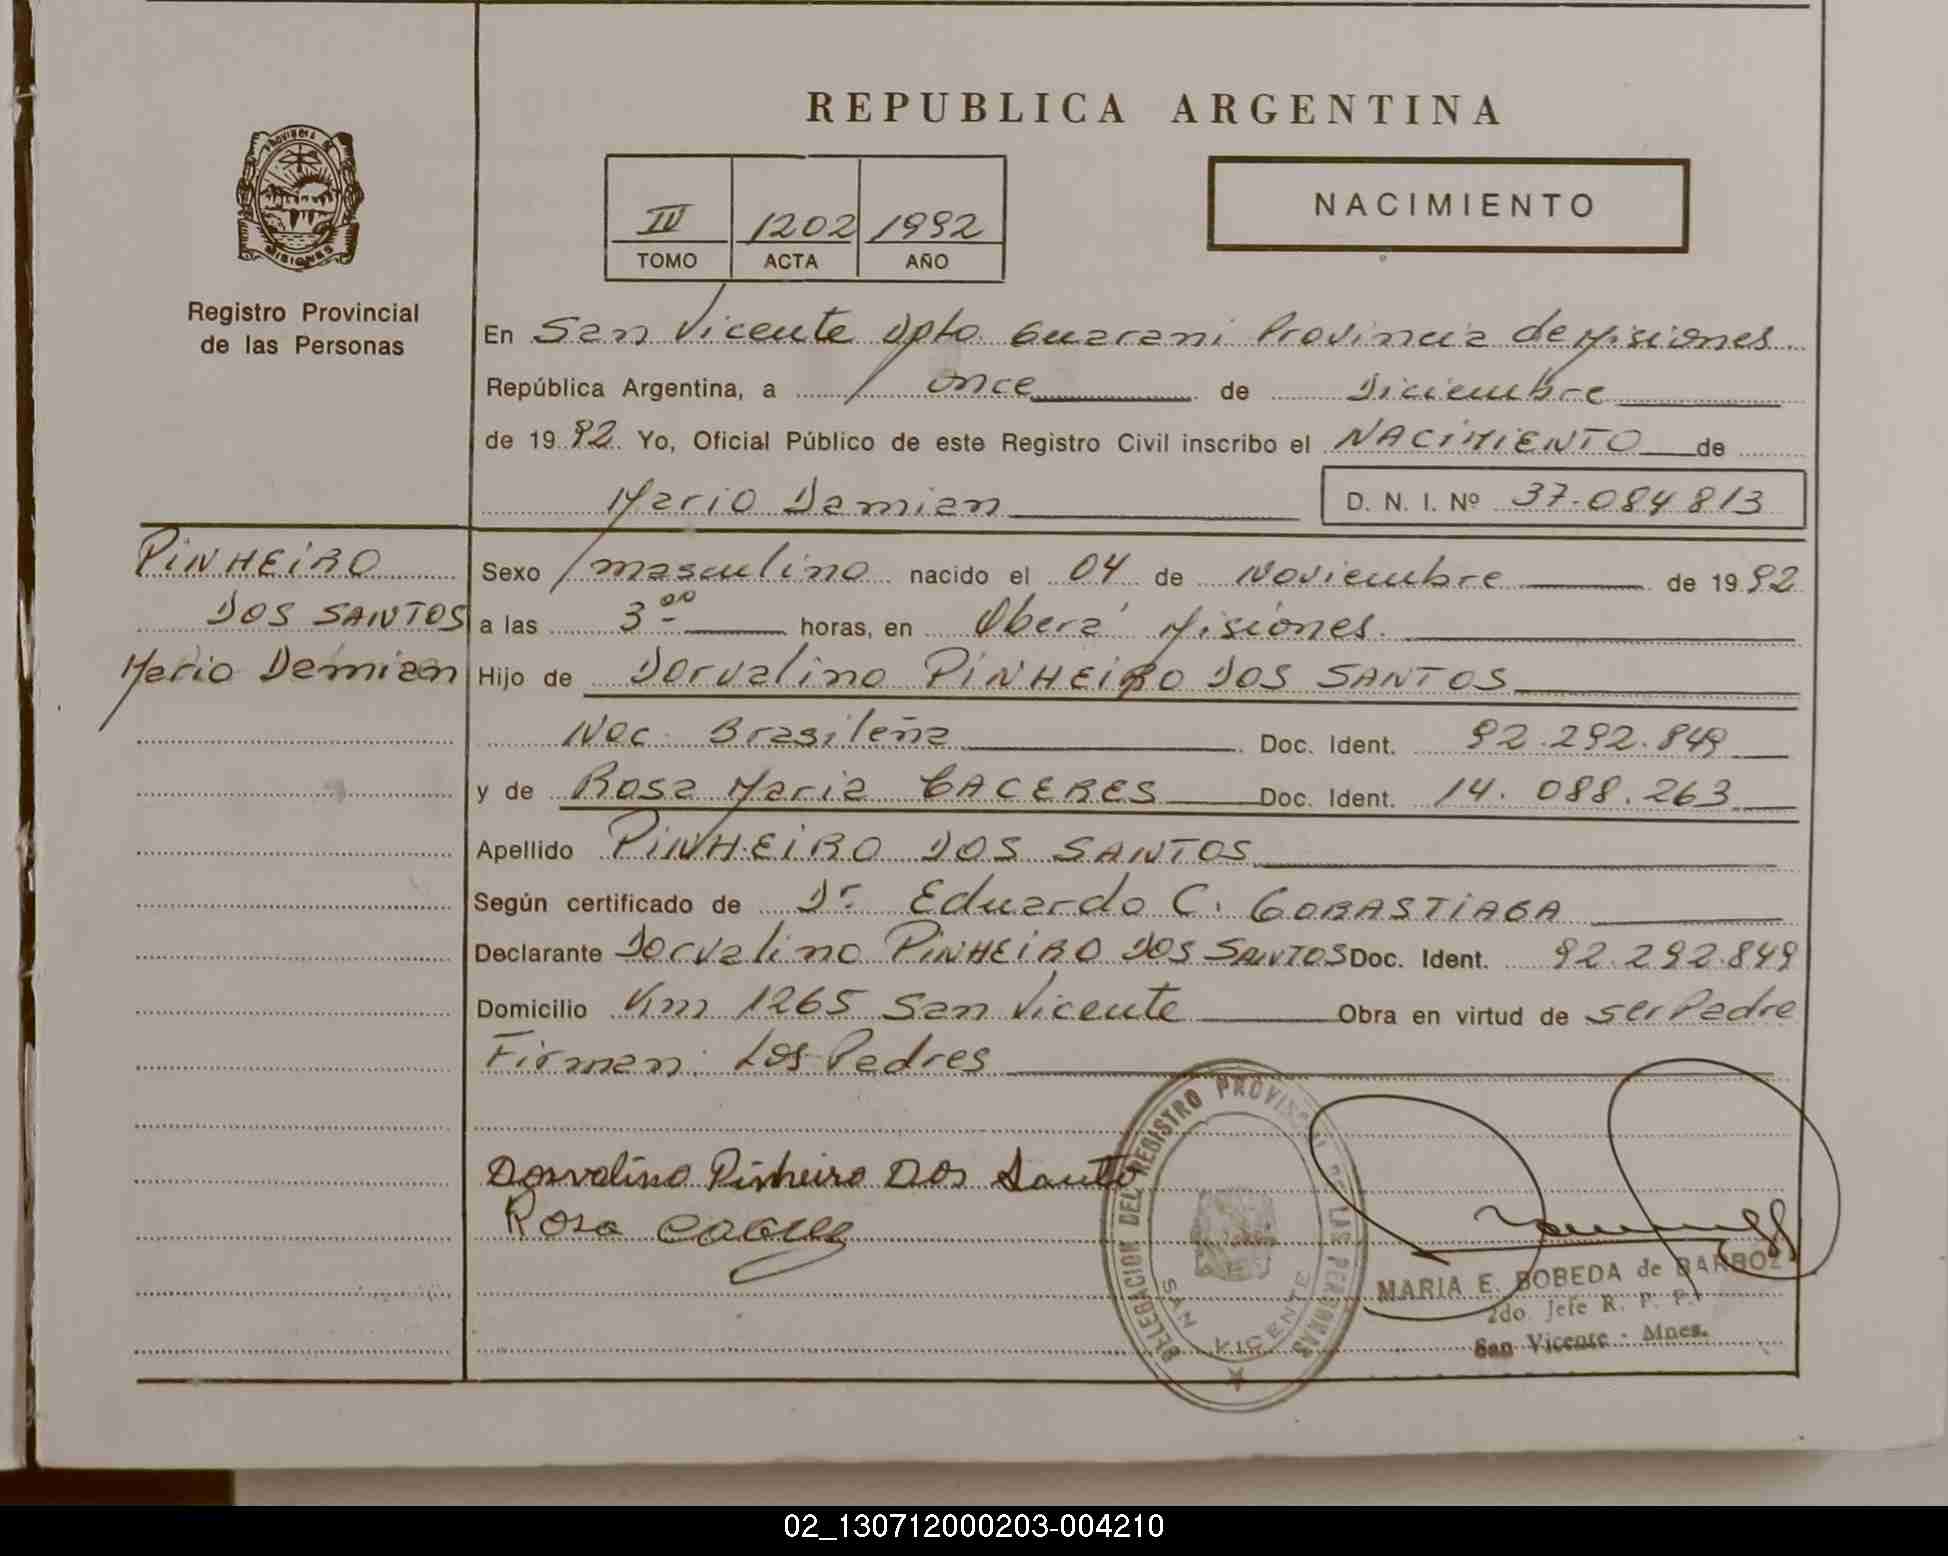 REPUBLICA ARGENTINA
PROVINCIA DE
MISIONES
Registro Provincial
de las Personas
IV 1202 1992
TOMO ACTA AÑO
NACIMIENTO
En San Vicente Dpto. Guarani Provincia de Misiones
República Argentina, a once de Diciembre
de 19 92 Yo, Oficial Público de este Registro Civil inscribo el NACIMIENTO de
Mario Damian D. N. I. Nº 37.084.813
PINHEIRO
DOS SANTOS
Mario Damian
Sexo masculino nacido el 04 de Noviembre de 19 92
a las 3.00 horas, en Oberá Misiones.
Hijo de Dorvalino PINHEIRO DOS SANTOS
Nac. Brasileña Doc. Ident. 92.292.849
y de Rosa Maria CACERES Doc. Ident. 14.088.263
Apellido PINHEIRO DOS SANTOS
Según certificado de Dr. Eduardo C. GORASTIAGA
Declarante Dorvalino PINHEIRO DOS SANTOS Doc. Ident. 92.292.849
Domicilio Km 1265 San Vicente Obra en virtud de ser Padre
Firman: Los Padres
Dorvalino Pinheiro Dos Santo
Rosa Caceres
DELEGACION DEL REGISTRO PROVINCIAL DE LAS PERSONAS
SAN VICENTE
MARIA E. BOBEDA de BARBOZ
2do. Jefe R. P. P.
San Vicente - Mnes.
02_130712000203-004210